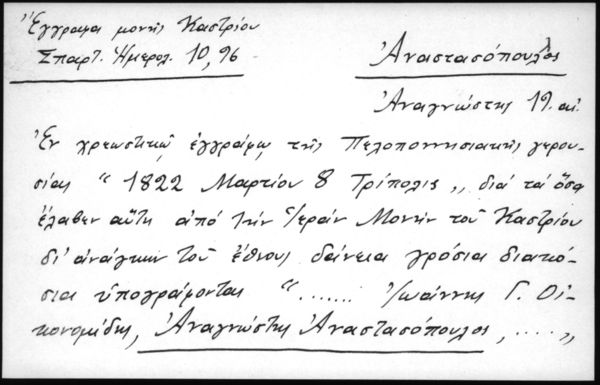 Ἔγγραφα μονῆς Καστρίου
Σπαρτ. Ἡμερολ. 10, 96
Ἀναστασόπουλος
Ἀναγνώστης 19. αἰ.
Ἐν χρεωστικῷ ἐγγράφῳ τῆς Πελοποννησιακῆς γερου-
σίας " 1822 Μαρτίου 8 Τρίπολις ,, διά τά ὅσα
ἔλαβεν αὕτη ἀπό τήν Ἱεράν Μονήν τοῦ Καστρίου
δι' ἀνάγκην τοῦ ἔθνους δάνεια γρόσια διακό-
σια ὑπογράφοντας "....... Ἰωάννης Γ. Οἰ-
κονομίδης, Ἀναγνώστης Ἀναστασόπουλος, .... ,,